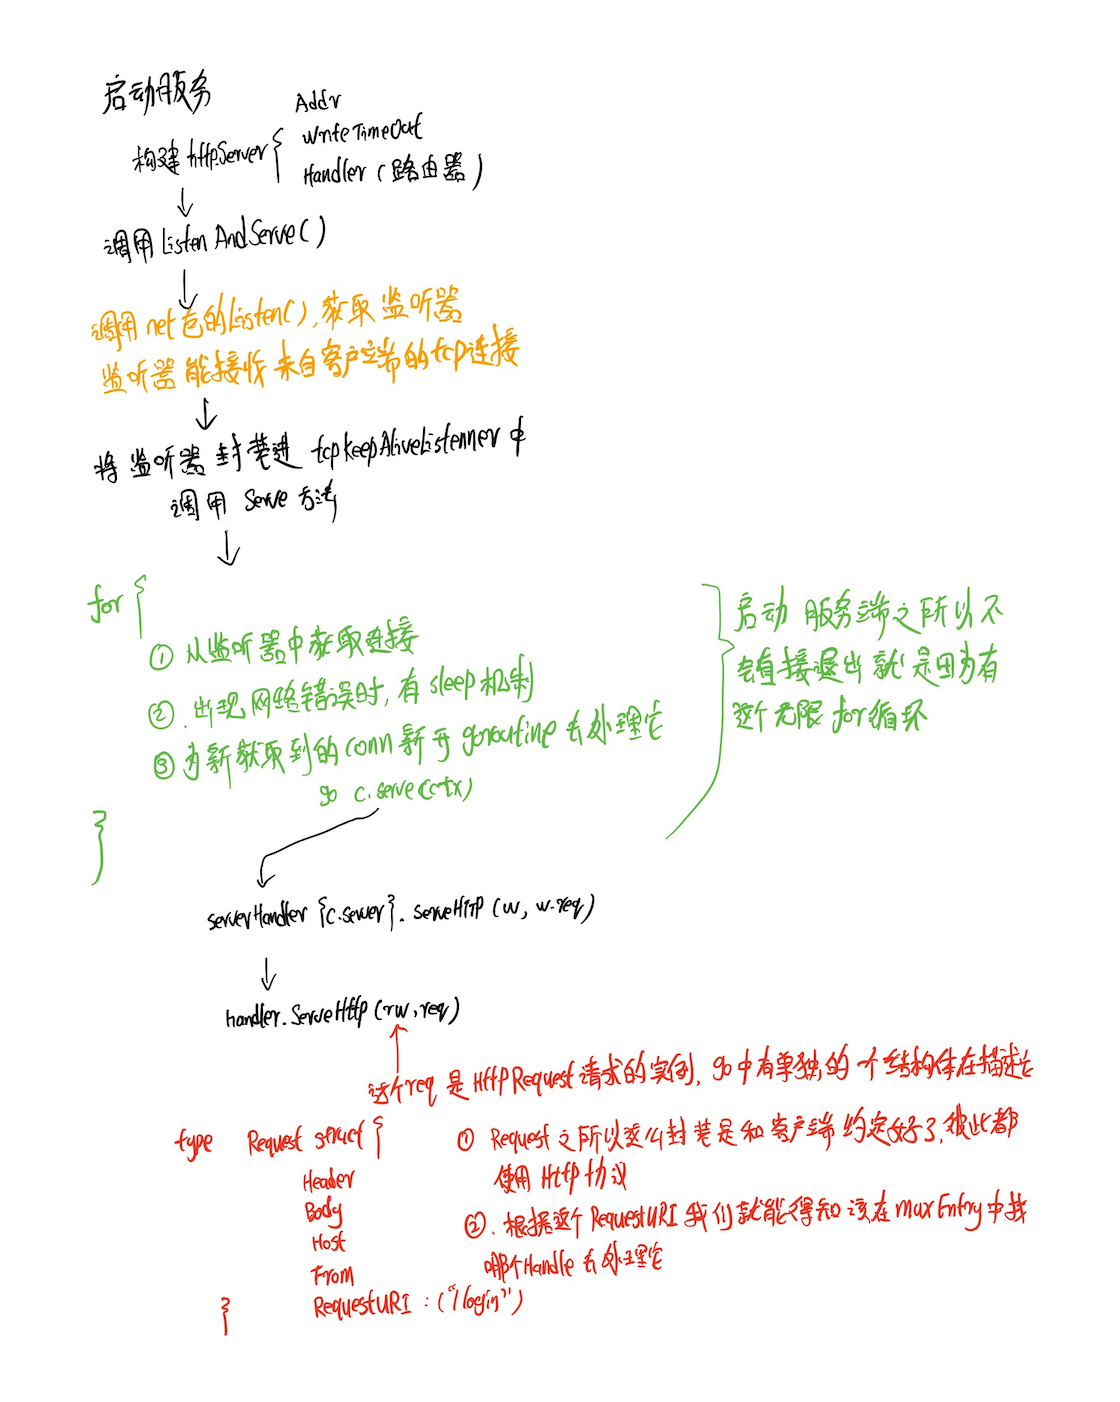 启动服务
Addr
构建 http.Server {
WriteTimeOut
Handler (路由器)
调用 Listen AndServe()
调用 net 包的Listen(), 获取 监听器
监听器 能接收 来自客户端的 tcp连接
将 监听器 封装进 tcpKeepAliveListenner 中
调用 Serve 方法
for {
① 从监听器中获取连接
②. 出现网络错误时, 有 sleep 机制
③ 为新获取到的 conn 新开 goroutine 去处理它
go c.serve(ctx)
}
启动 服务端之所以不
会直接退出 就是因为有
这个无限 for 循环
serverHandler {c.server}. serveHTTP (w, w.req)
handler. ServeHttp (rw, req)
这个req 是 Http Request 请求的实例, go中有单独的一个结构体在描述它
type Request struct {
Header
Body
Host
From
RequestURI : ("/login")
}
① Request 之所以这么封装是和客户端 约定好了, 彼此都
使用 Http 协议
②. 根据这个 RequestURI 我们就能得知该在 muxEntry 中找
哪个Handle 去处理它